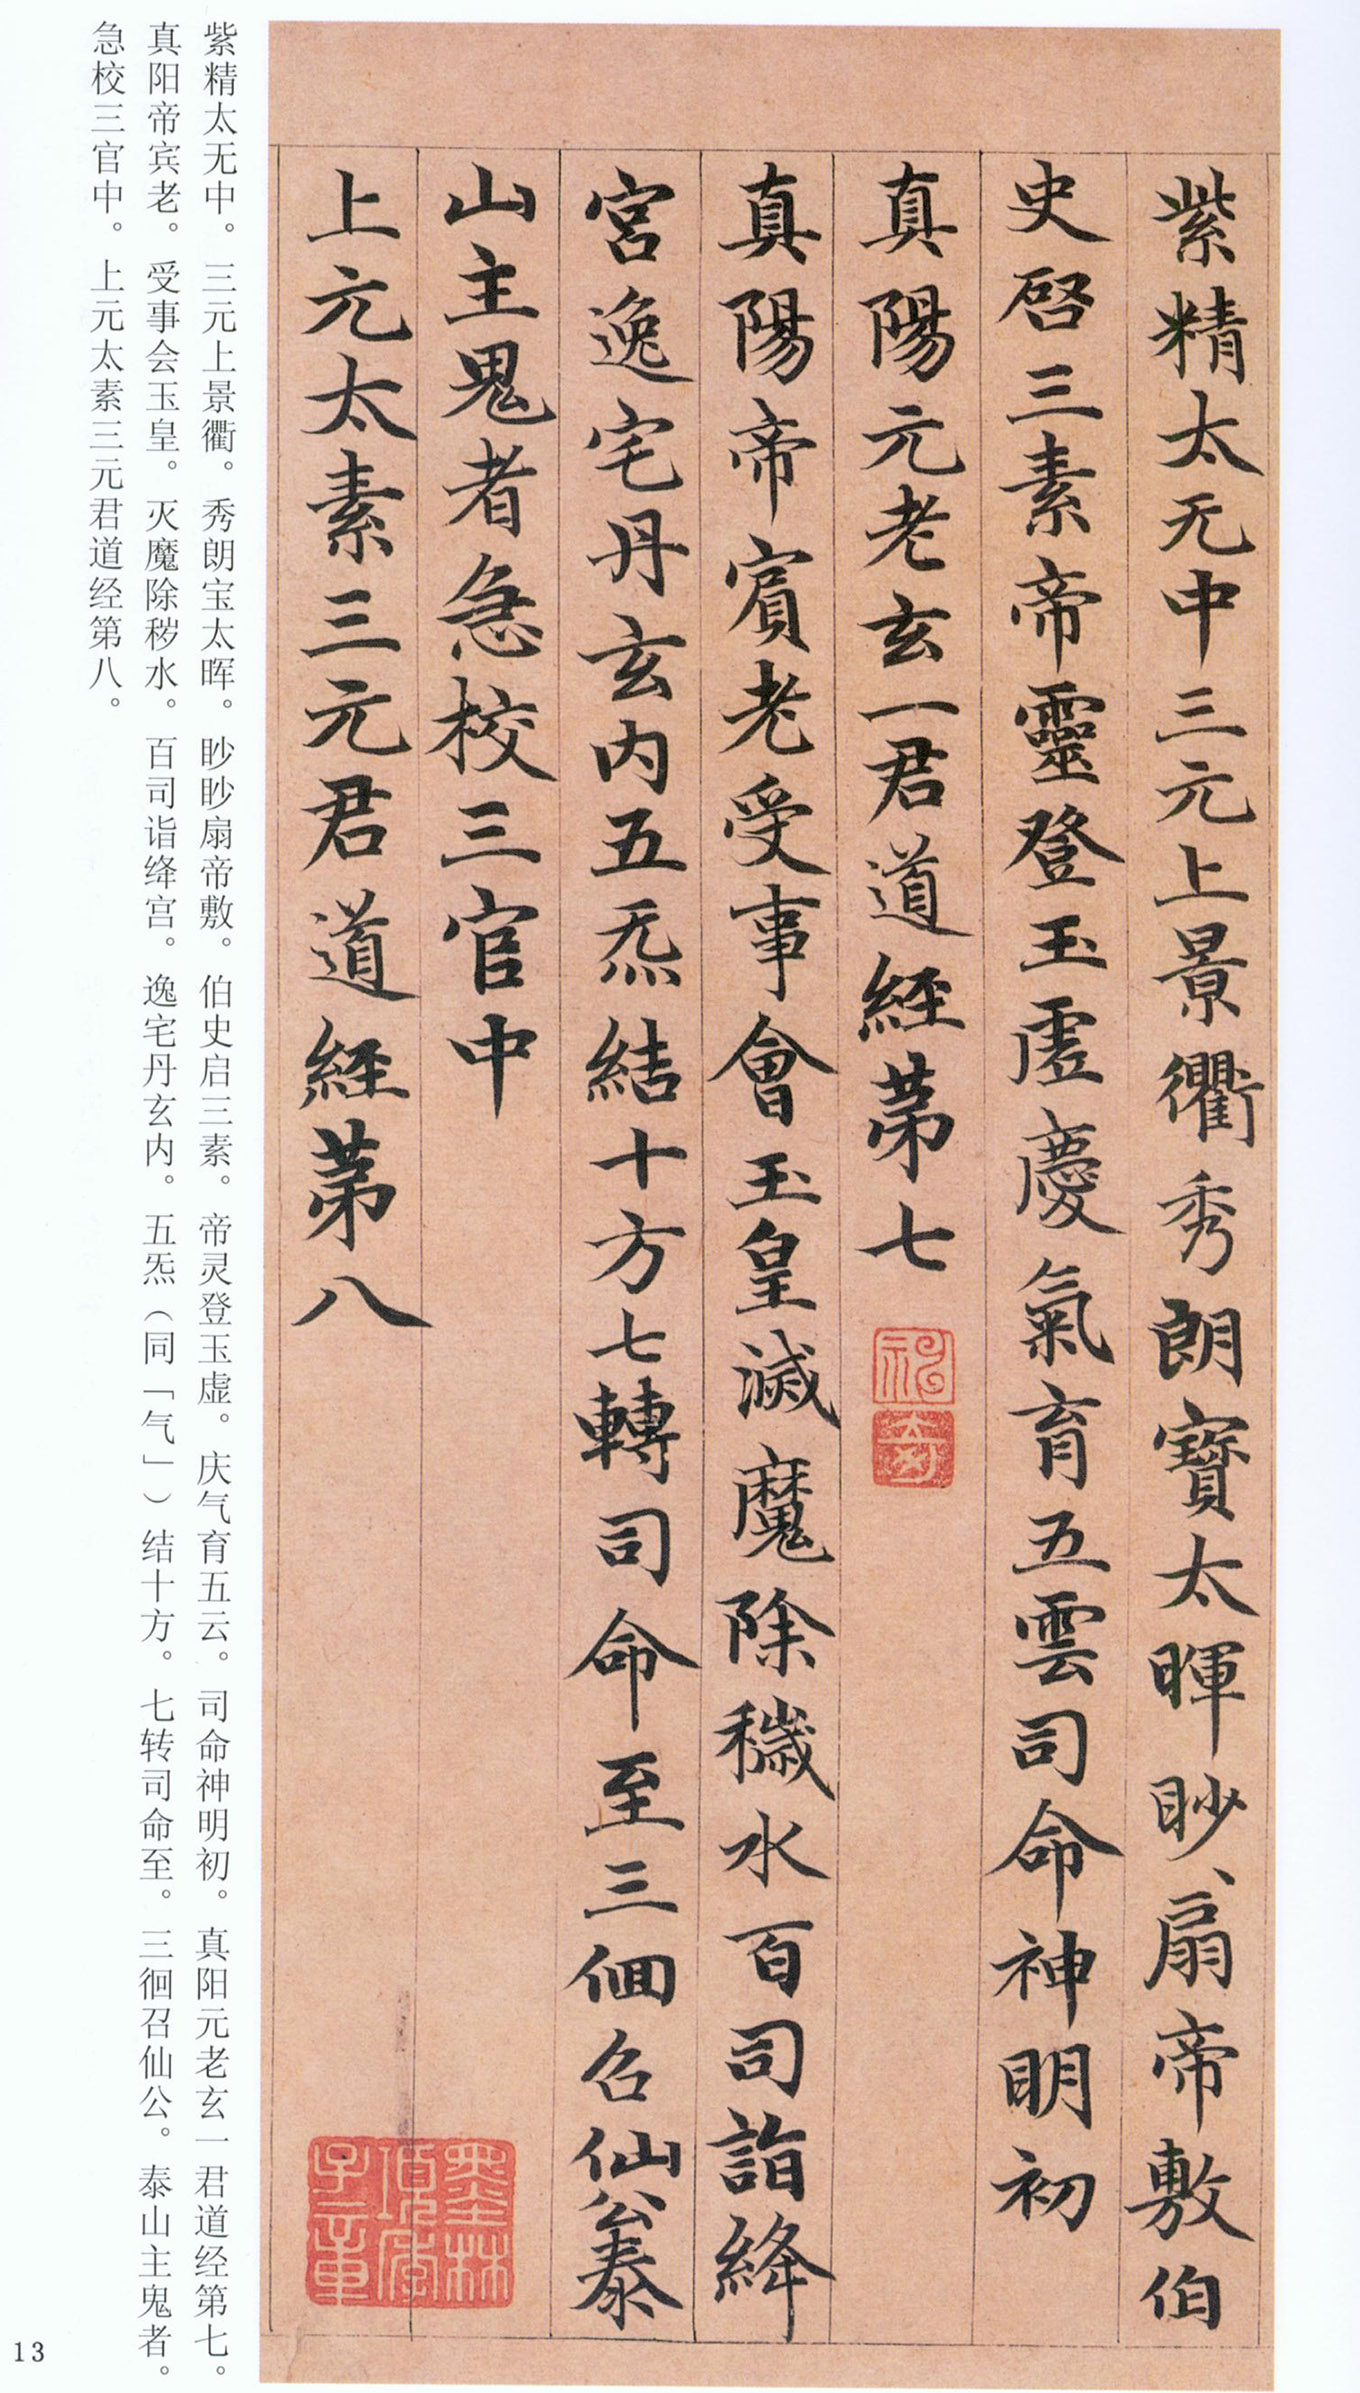 紫精太无中三元上景衢秀朗寶太暉眇〻扇帝敷伯
史啓三素帝靈登玉虛慶氣育五雲司命神明初
真陽元老玄一君道經第七
真陽帝賓老受事會玉皇滅魔除穢水百司詣絳
宮逸宅丹玄内五炁結十方七轉司命至三佪召仙公泰
山主鬼者急校三官中
上元太素三元君道經第八
墨林
項季
子章
紫精太无中。三元上景衢。秀朗宝太晖。眇眇扇帝敷。伯史启三素。帝灵登玉虚。庆气育五云。司命神明初。真阳元老玄一君道经第七。
真阳帝宾老。受事会玉皇。灭魔除秽水。百司诣绛宫。逸宅丹玄内。五炁（同「气」）结十方。七转司命至。三徊召仙公。泰山主鬼者。
急校三官中。上元太素三元君道经第八。
13